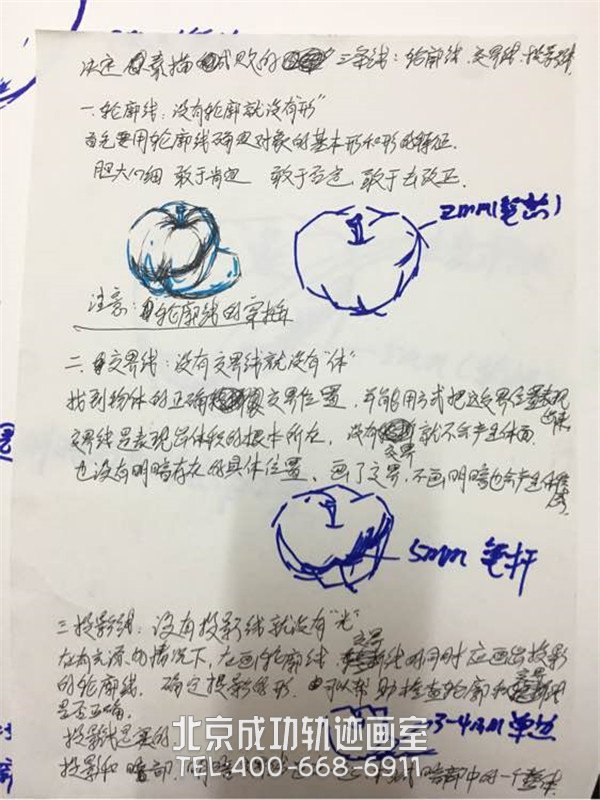 决定素描成败的三条线：轮廓线，交界线，投影线
一.轮廓线：没有轮廓就没有"形"
首先要用轮廓线确定对象的基本形和形的特征.
胆大心细 敢于肯定 敢于否定，敢于去改正.
2mm(笔尖)
注意：轮廓线的穿插
二.交界线：没有交界线就没有"体"
找到物体的正确交界位置，并能用方式把这交界位置表现出来
交界线是表现出体积的根本所在，没有交界就不会产生体面.
也没有明暗存在的具体位置，画了交界，不画明暗也会产生体积感.
5mm 笔杆
三.投影线：没有投影线就没有"光"
在有光源的情况下，在画轮廓线，交界线的同时应画出投影
的轮廓线. 确定投影的形. 可以帮助检查轮廓和交界
是否正确.
3-4mm 单边
投影线是
北京成功轨迹画室
投影和暗部，
TEL:400-668-6911
中的一个整体